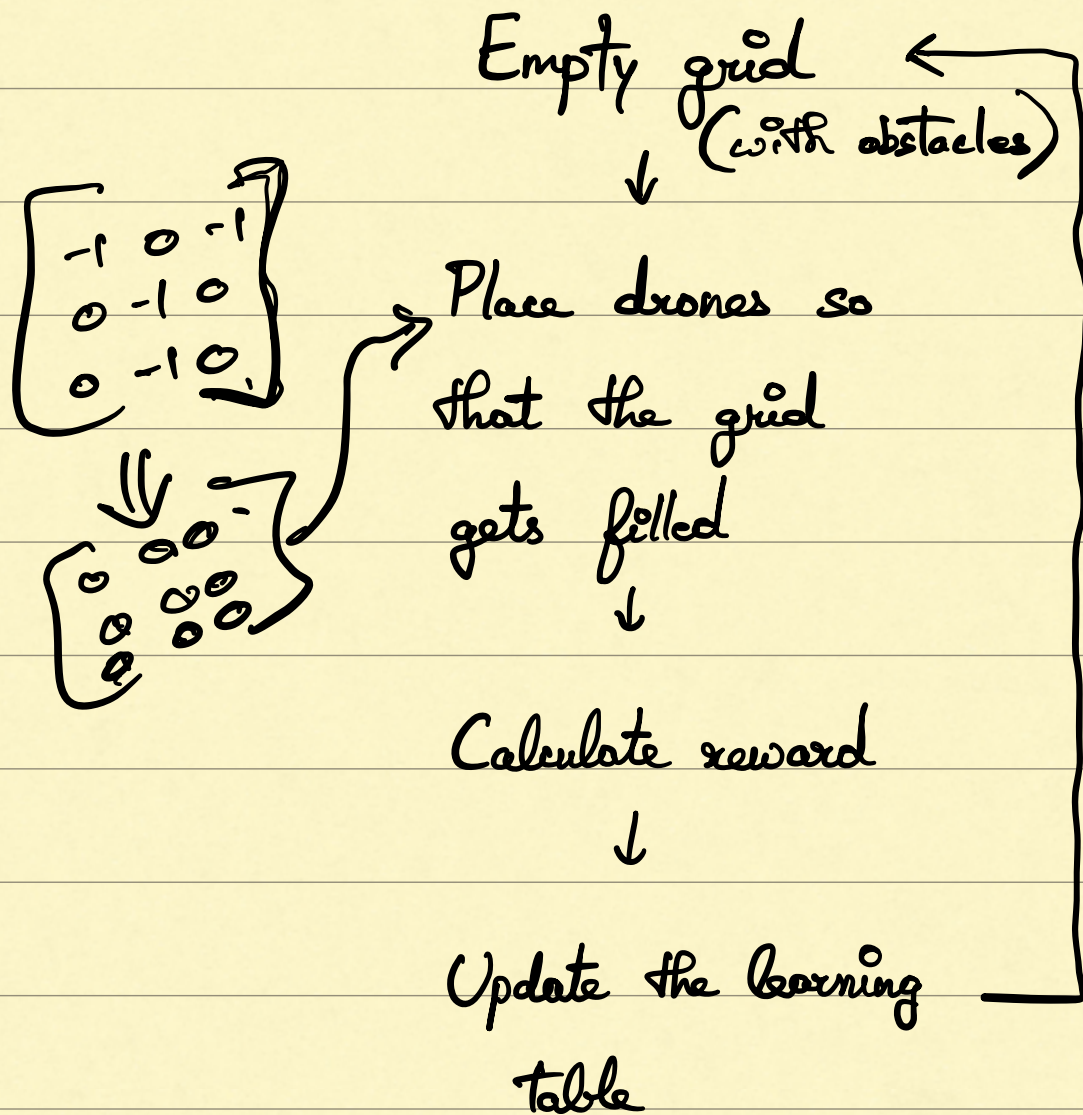 Empty grid
(with obstacles)
-1 0 -1
0 -1 0
0 -1 0
Place drones so
that the grid
gets filled
0 0 0
0 0 0
0 0 0
Calculate reward
Update the learning
table